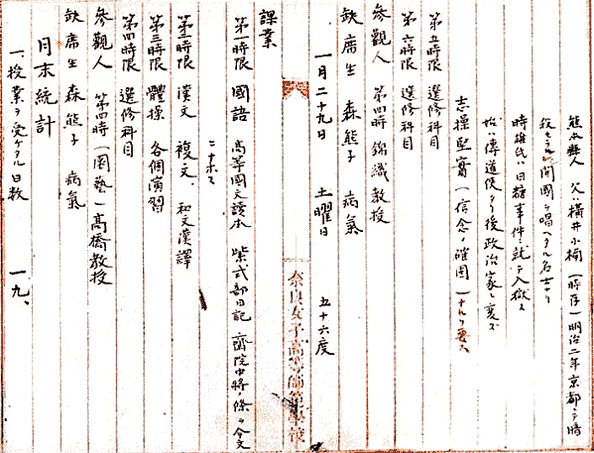 熊本縣人 父ハ横井小楠(時存)明治二年京都ニテ時
殺セラル 開國ヲ唱ヘタル名士ナリ
時雄氏ハ日糖事件ニ就テ入獄ス
始ハ傳道使タリ後政治家ニ変ズ
志操堅實(信念ノ確固)ナルヲ要ス
第五時限 選修科目
第六時限 選修科目
參觀人 第四時 錦織教授
缺席生 森熊子 病氣
一月二十九日 土曜日 五十六度
奈良女子高等師範學校
課業
第一時限 國語 高等國文讀本 紫式部日記 齋院中將ノ條ノ全文
ニナホス
第二時限 漢文 複文、和文漢譯
第三時限 體操 各個演習
第四時限 選修科目
參觀人 第四時(園藝)髙橋教授
缺席生 森熊子 病氣
月末統計
一、授業ヲ受ケタル日数 一九、